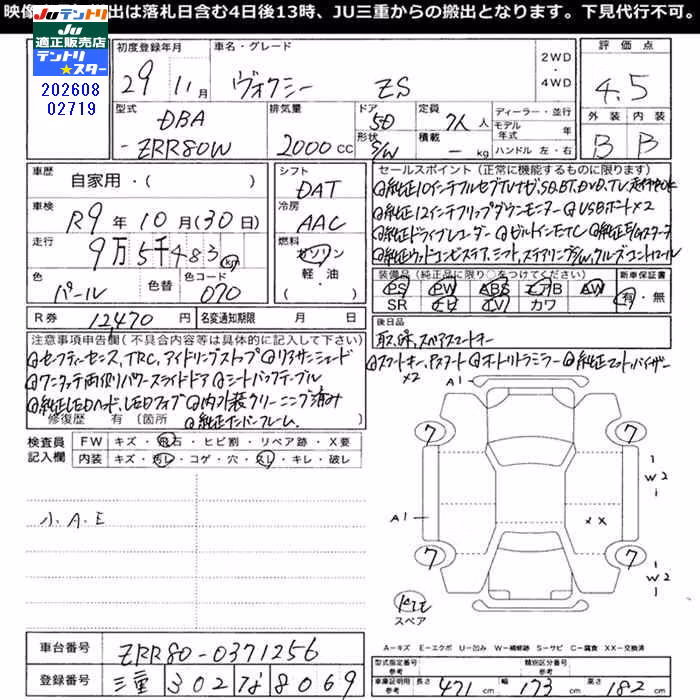 映像 出は落札日含む4日後13時、JU三重からの搬出となります。下見代行不可。
JUテントリ
JU
適正販売店
テントリ
スター
202608
02719
初度登録年月 車名・グレード
29 11月 ヴォクシー ZS
2WD
・
4WD
評価点
4.5
外装 内装
B B
型式 排気量 ドア 定員 ディーラー・並行
DBA 5D 7人 人 モデル年式 年
-ZRR80W 2000 CC 形状 S/W 積載 - kg ハンドル 左・右
車歴 自家用・( )
シフト DAT
車検 R9年10月(30日)
冷房 AAC
走行 9万5千483 km
燃料 ガソリン
軽・油
( )
色 パール 色替 色コード 070
R券 12,470円 名変通知期限 月 日
セールスポイント(正常に機能するものに限ります)
純正10インチフルセグTVナビ,SD,BT,DVD,TV,走行中OK
純正12インチフリップダウンモニター USBポート×2
純正ドライブレコーダー ビルトインETC 純正E/Gスターター
純正ウッドコンビステア,シフト,ステアリングS/W,クルーズコントロール
装備品(純正品に限り○をつけてください) 新車保証書
PS PW ABS エアB AW 有・無
SR ナビ TV カワ
後日品
取,保,スペアスマートキー
スマートキー,Pスタート オートリトラミラー 純正マット,バイザー
×2
注意事項申告欄(不具合内容等は具体的に記入して下さい)
セーフティーセンス,TRC,アイドリングストップ リアサンシェード
ワンタッチ両側パワースライドドア シートバックテーブル
純正LEDヘッド,LEDフォグ 内外装クリーニング済み
修復歴 有 〔箇所 純正ナンバーフレーム.
検査員 FW キズ・飛石・ヒビ割・リペア跡・X要
記入欄 内装 キズ・汚レ・コゲ・穴・スレ・キレ・破レ
小.A.E
A1
7 7
1
W2
1
A1
××
7 7
1
W2
1
スペア
A−キズ E−エクボ U−凹み W−補修跡 S−サビ C−腐食 XX−交換済
車台番号 ZRR80-0371256
登録番号 三重 302 な 8069
型式指定番号 類別区分番号
車庫証明用 長さ 471 cm 幅 173 cm 高さ 182 cm